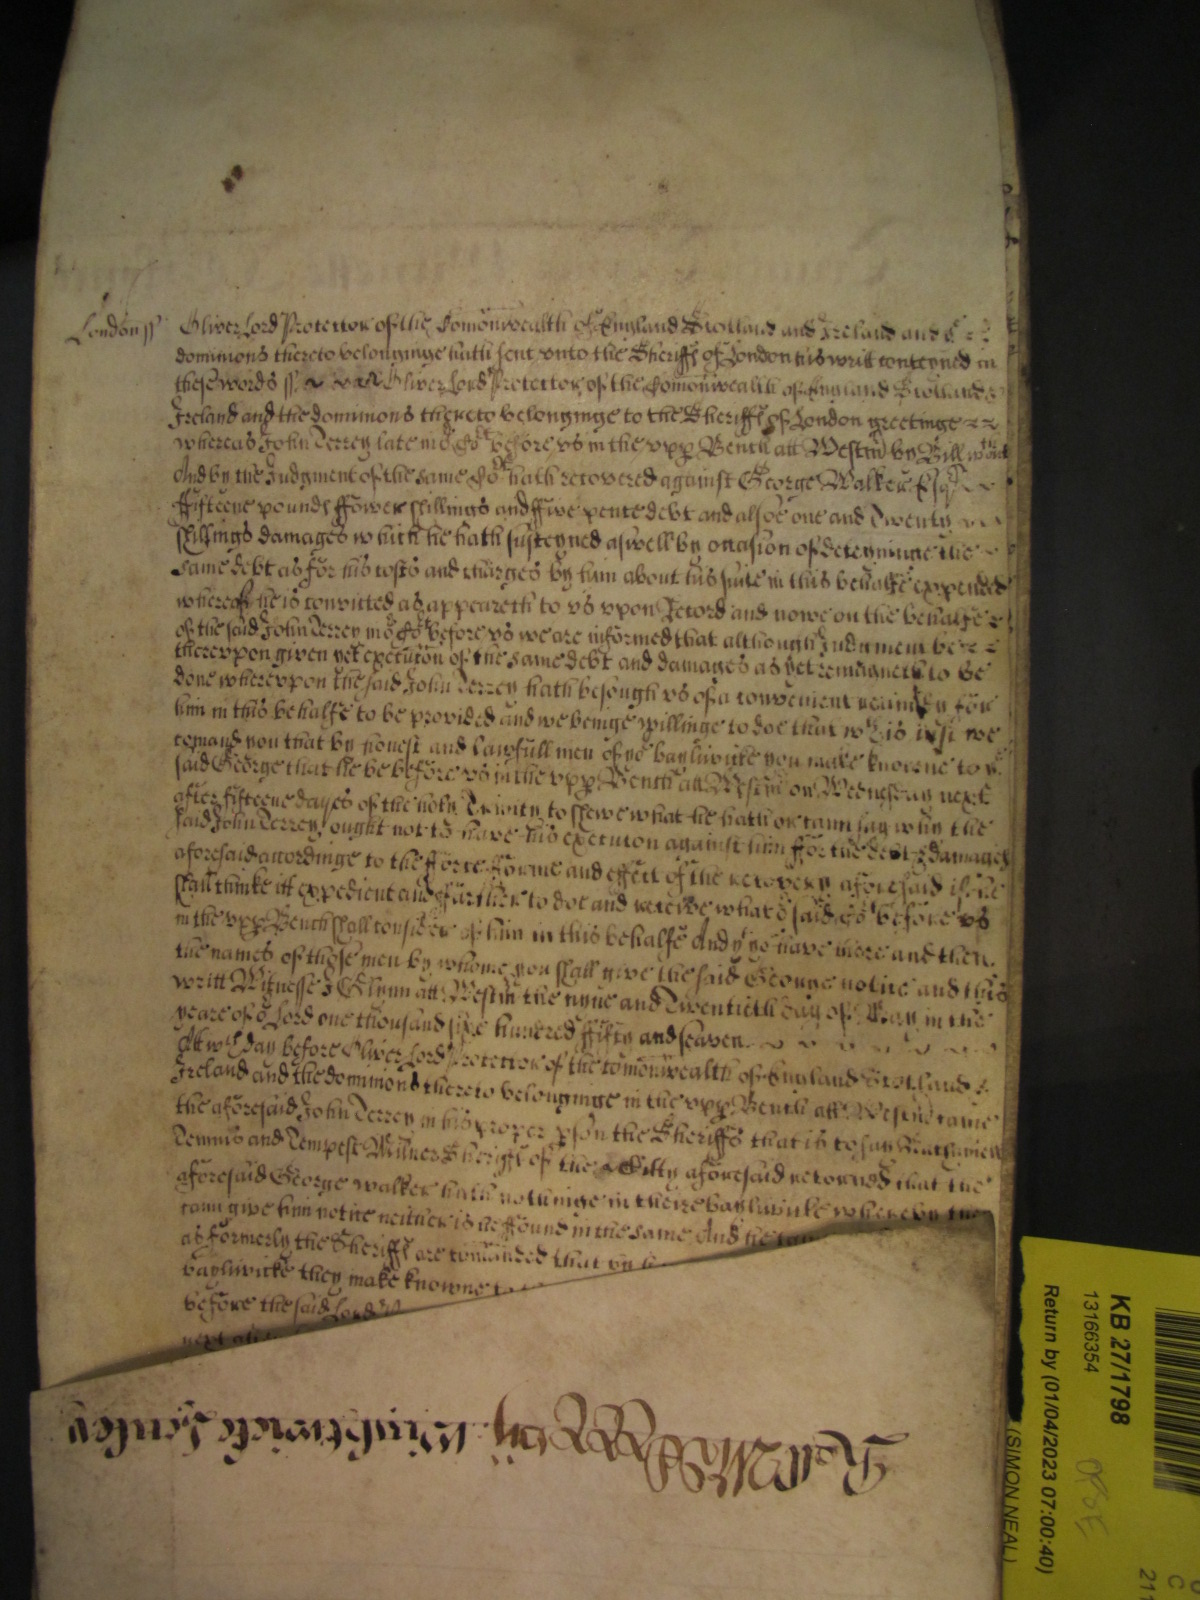 London ss Oliver Lord Protector of the Comonwealth of England Scotland and Ireland and
dominions thereto belonginge hath sent vnto the Sheriffs of London his writt conteyned in
these words ss. Oliver Lord Protector of the Comonwealth of England Scotland &
Ireland and the dominions thereto belonginge to the Sheriffs of London greetinge
whereas John Terrey late in before vs in the vpp Bench att Westm by Bill wthout
And by the Judgment of the same hath recovered against George Walker Esq
ffifteene pounds ffower shillings and ffive pence debt and alsoe one and Twenty
shillings damages which he hath susteyned aswell by occasion of deteyninge the
same debt as for his costs and charges by him about his suite in this behalfe expended
whereof he is convicted as appeareth to vs vpon Record and nowe on the behalfe
of the said John Terrey in before vs we are informed that although Judgment be
therevpon given yet execucon of the same debt and damages as yet remayneth to be
done wherevpon the said John Terrey hath besough vs of a convenient remedy for
him in this behalfe to be provided and we beinge willinge to doe that wch is iust we
comand you that by honest and lawfull men of yor bayliwicke you make knowne to ye
said George that he be before vs in the vpp Bench att Westm on Wednesday next
after fifteene dayes of the holy Trinity to shewe what he hath or cann say why the
said John Terrey ought not to have his execucon against him ffor the debt & damages
aforesaid accordinge to the fforce fforme and effect of the recovery aforesaid if he
shall thinke itt expedient and ffurther to doe and receive what or said before vs
in the vpp Bench shall consider of him in this behalfe And yt yo have there and then
the names of those men by whome you shall give the said George notice and this
writt Witnesse J Glynn att Westm the nyne and Twentieth day of May in the
yeare of or Lord one thousand sixe hundred ffifty and seaven
Att wch day before Oliver Lord Protector of the comonwealth of England Scotland
Ireland and the dominions thereto belonginge in the vpp Bench att Westm came
the aforesaid John Terrey in his proper pson the Sheriffs that is to say
and Tempest Milner Sheriffs of the Citty aforesaid retorned that the
aforesaid George walker hath nothinge in theire bayliwicke whereby they
cann give him notice neither is he ffound in the same And he
as formerly the Sheriffs are comanded that by
bayliwicke they make knowne to
before the said Lord
next
KB 27/1798
13166354
Return by (01/04/2023 07:00:40)
(SIMON NEAL)